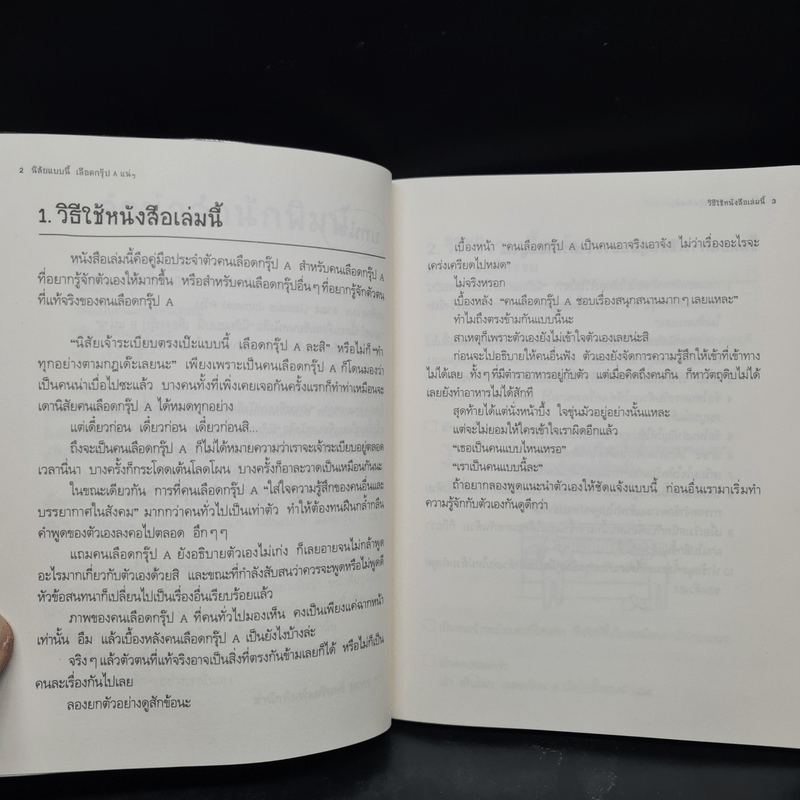 2 นิสัยแบบนี้ เลือดกรุ๊ป A แน่ๆ
1. วิธีใช้หนังสือเล่มนี้
หนังสือเล่มนี้คือคู่มือประจำตัวคนเลือดกรุ๊ป A สำหรับคนเลือดกรุ๊ป A
ที่อยากรู้จักตัวเองให้มากขึ้น หรือสำหรับคนเลือดกรุ๊ปอื่นๆ ที่อยากรู้จักตัวตน
ที่แท้จริงของคนเลือดกรุ๊ป A
"นิสัยเจ้าระเบียบตรงเป๊ะแบบนี้ เลือดกรุ๊ป A ละสิ" หรือไม่ก็ "ทำ
ทุกอย่างตามกฎเด๊ะเลยนะ" เพียงเพราะเป็นคนเลือดกรุ๊ป A ก็โดนมองว่า
เป็นคนน่าเบื่อไปซะแล้ว บางคนทั้งที่เพิ่งเคยเจอกันครั้งแรกก็ทำท่าเหมือนจะ
เดานิสัยคนเลือดกรุ๊ป A ได้หมดทุกอย่าง
แต่เดี๋ยวก่อน เดี๋ยวก่อน เดี๋ยวก่อนสิ...
ถึงจะเป็นคนเลือดกรุ๊ป A ก็ไม่ได้หมายความว่าเราจะเจ้าระเบียบอยู่ตลอด
เวลานี่นา บางครั้งก็กระโดดเต้นโลดโผน บางครั้งก็อาละวาดเป็นเหมือนกันนะ
ในขณะเดียวกัน การที่คนเลือดกรุ๊ป A "ใส่ใจความรู้สึกของคนอื่นและ
บรรยากาศในสังคม" มากกว่าคนทั่วไปเป็นเท่าตัว ทำให้ต้องทนฝืนกล้ำกลืน
คำพูดของตัวเองลงคอไปตลอด ฮึกๆๆ
แถมคนเลือดกรุ๊ป A ยังอธิบายตัวเองไม่เก่ง ก็เลยอายจนไม่กล้าพูด
อะไรมากเกี่ยวกับตัวเองด้วยสิ และขณะที่กำลังสับสนว่าควรจะพูดหรือไม่พูดดี
หัวข้อสนทนาก็เปลี่ยนไปเป็นเรื่องอื่นเรียบร้อยแล้ว
ภาพของคนเลือดกรุ๊ป A ที่คนทั่วไปมองเห็น คงเป็นเพียงแค่ฉากหน้า
เท่านั้น อืม แล้วเบื้องหลังคนเลือดกรุ๊ป A เป็นยังไงบ้างล่ะ
จริงๆ แล้วตัวตนที่แท้จริงอาจเป็นสิ่งที่ตรงกันข้ามเลยก็ได้ หรือไม่ก็เป็น
คนละเรื่องกันไปเลย
ลองยกตัวอย่างดูสักข้อนะ
วิธีใช้หนังสือเล่มนี้ 3
เบื้องหน้า "คนเลือดกรุ๊ป A เป็นคนเอาจริงเอาจัง ไม่ว่าเรื่องอะไรจะ
เคร่งเครียดไปหมด"
ไม่จริงหรอก
เบื้องหลัง "คนเลือดกรุ๊ป A ชอบเรื่องสนุกสนานมากๆ เลยแหละ"
ทำไมถึงตรงข้ามกันแบบนี้นะ
สาเหตุก็เพราะตัวเองยังไม่เข้าใจตัวเองเลยน่ะสิ
ก่อนจะไปอธิบายให้คนอื่นฟัง ตัวเองยังจัดการความรู้สึกให้เข้าที่เข้าทาง
ไม่ได้เลย ทั้งๆ ที่มีตำราอาหารอยู่กับตัว แต่เมื่อคิดถึงคนกิน ก็หาวัตถุดิบไม่ได้
เลยยังทำอาหารไม่ได้สักที
สุดท้ายได้แต่นั่งหน้าบึ้ง ใจขุ่นมัวอยู่อย่างนั้นแหละ
แต่จะไม่ยอมให้ใครเข้าใจเราผิดอีกแล้ว
"เธอเป็นคนแบบไหนเหรอ"
"เราเป็นคนแบบนี้ละ"
ถ้าอยากลองพูดแนะนำตัวเองให้ชัดแจ้งแบบนี้ ก่อนอื่นเรามาเริ่มทำ
ความรู้จักกับตัวเองกันดูดีกว่า